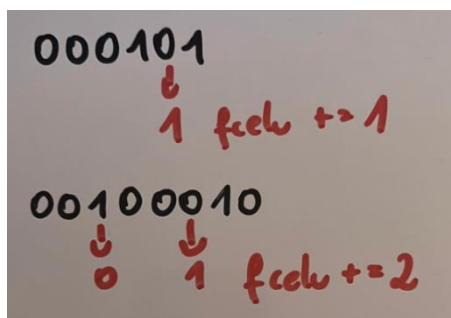 000101
1 fcelu += 1
00100010
0 1 fcelu += 2